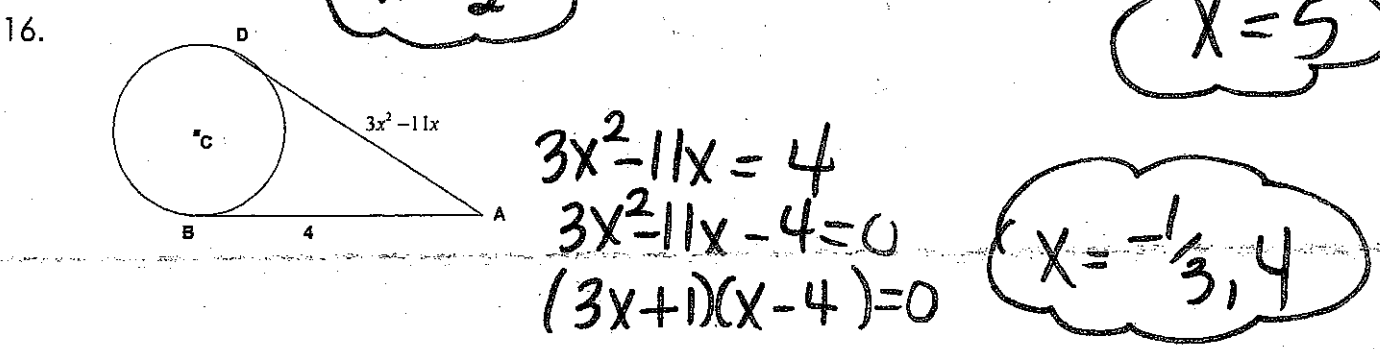 16.
2
X = 5
D
C
3x² – 11x
A
B
4
3x²-11x = 4
3x²-11x - 4 = 0
(3x+1)(x-4)=0
X = -1/3, 4